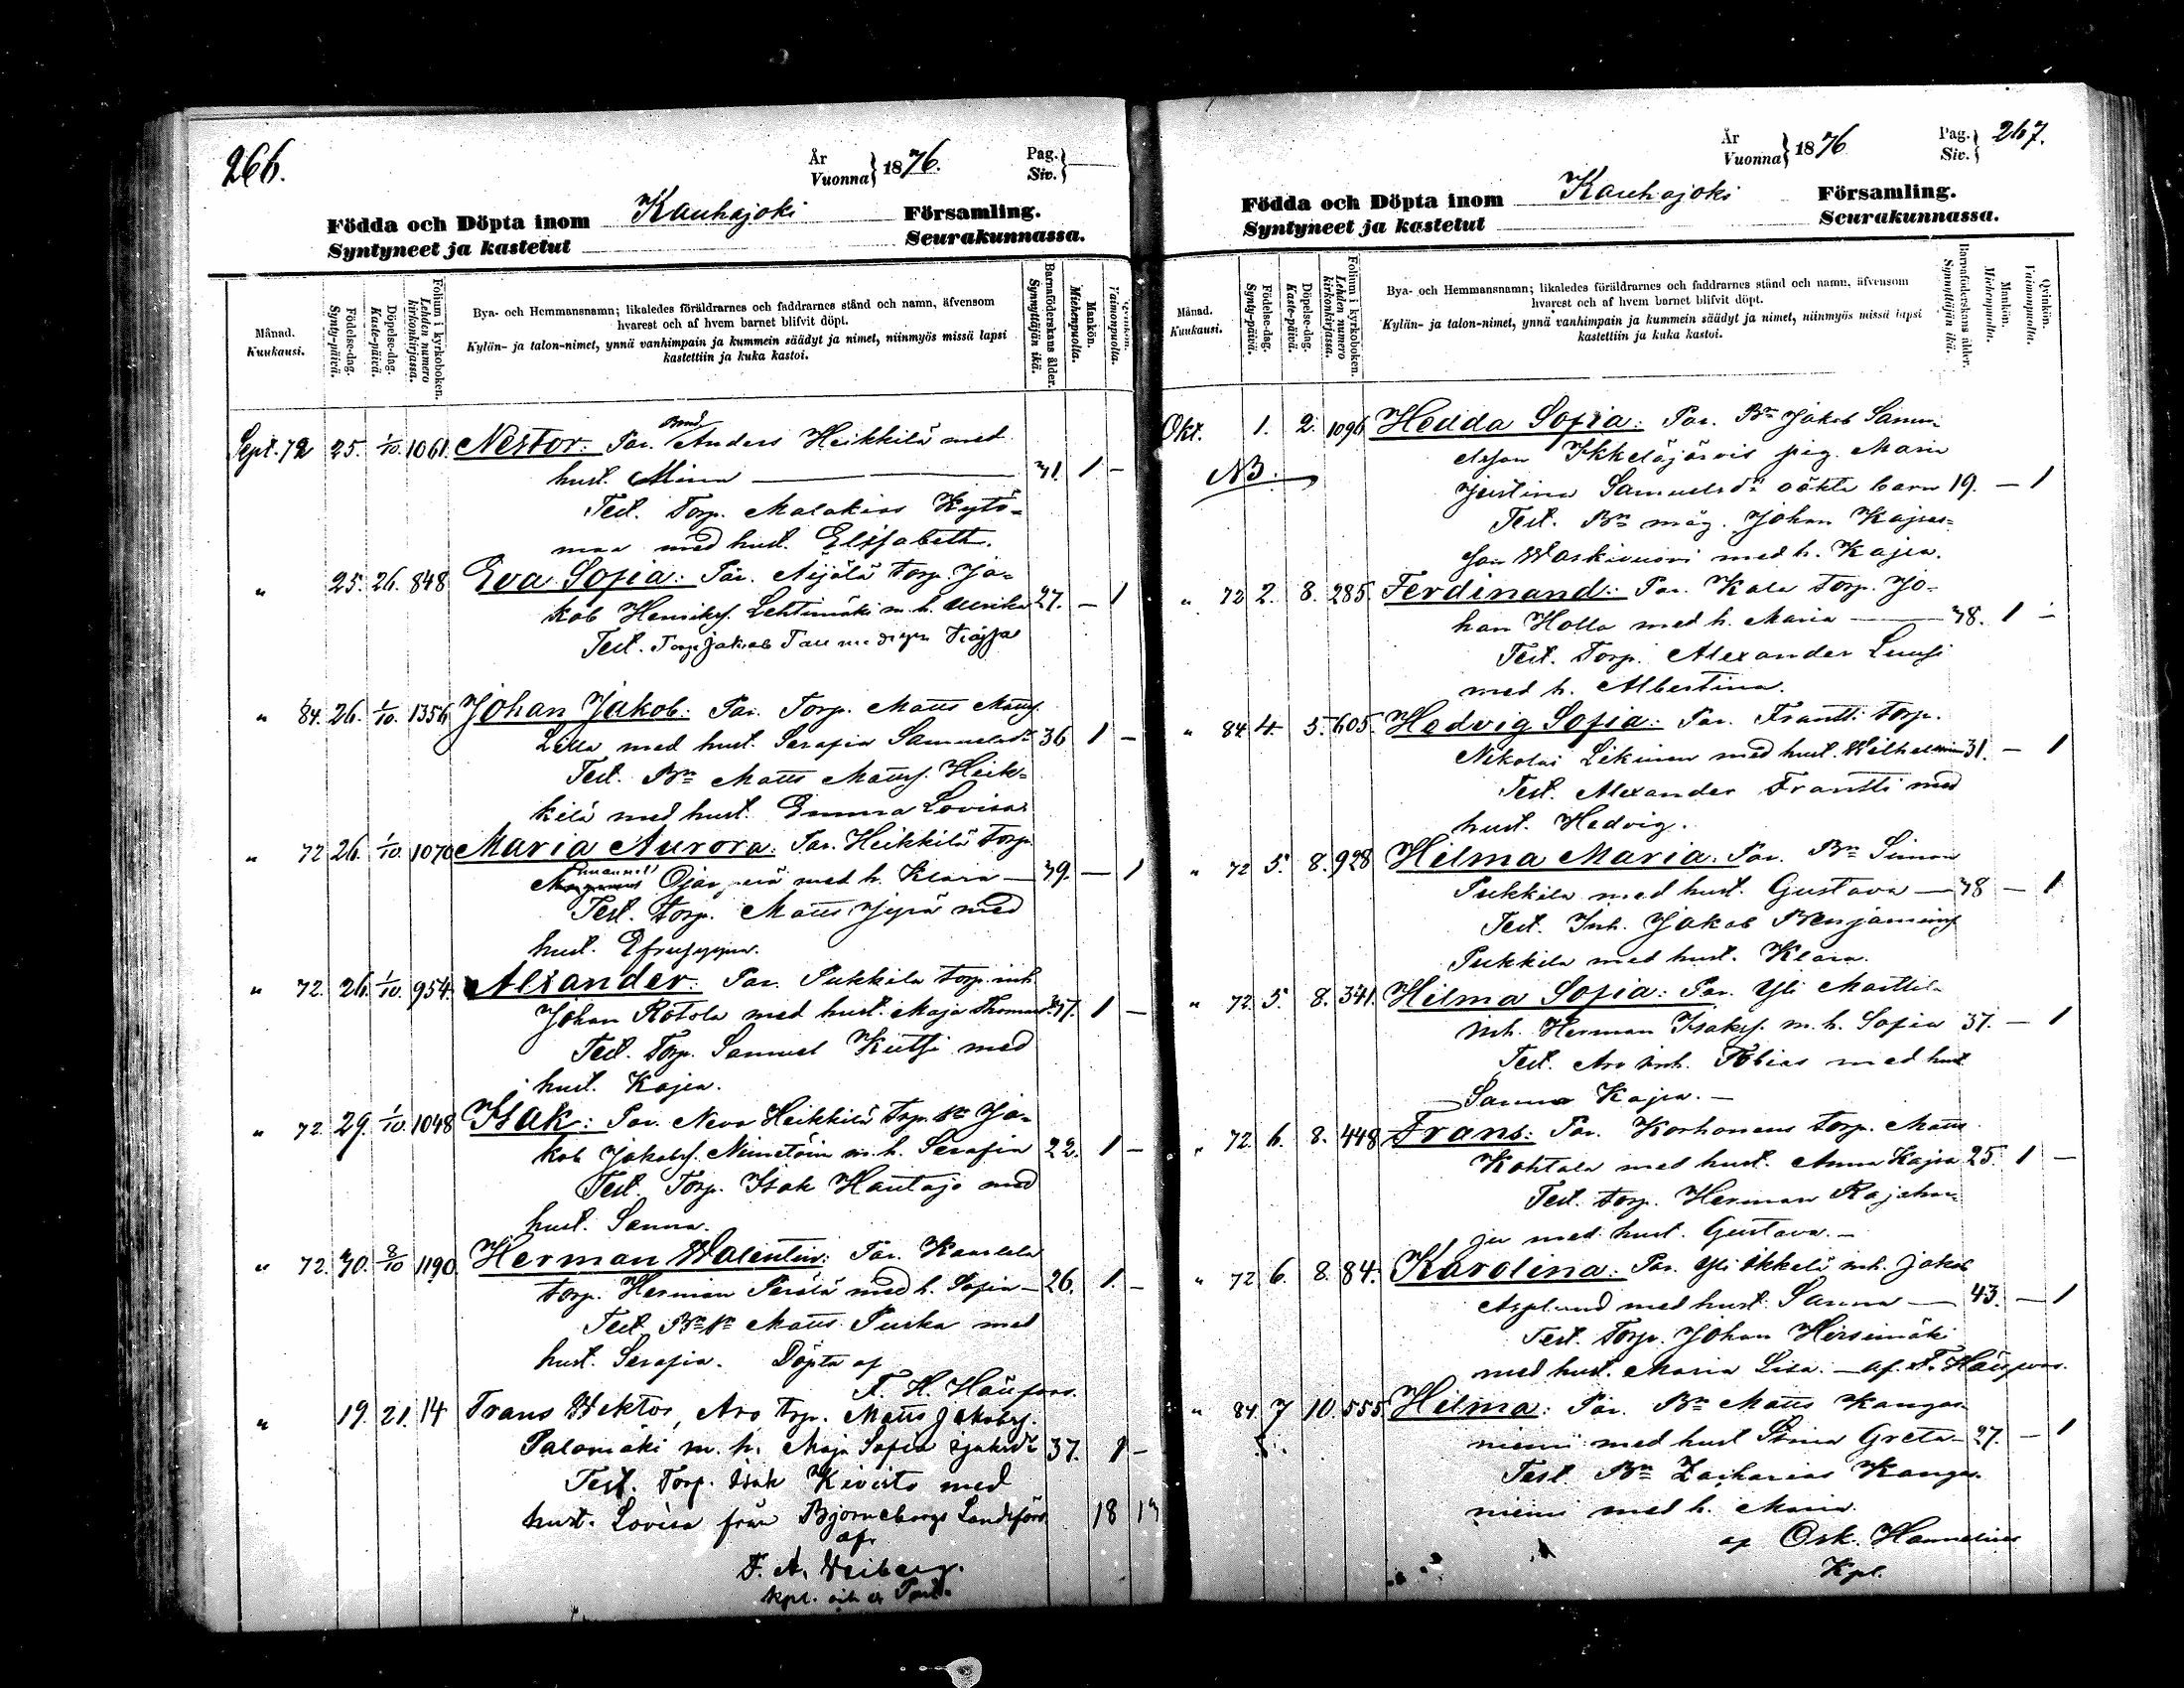 266.
År
Vuonna } 1876.
Pag.
Siv. }
Födda och Döpta inom Kauhajoki Församling.
Syntyneet ja kastetut Seurakunnassa.
Månad.
Kuukausi.
Födelse-dag.
Synty-päivä.
Döpelse-dag.
Kaste-päivä.
Folium i kyrkoboken.
Lehden numero kirkonkirjassa.
Bya- och Hemmansnamn; likaledes föräldrarnes och faddrarnes stånd och namn, äfvensom
hvarest och af hvem barnet blifvit döpt.
Kylän- ja talon-nimet, ynnä vanhimpain ja kummein säädyt ja nimet, niinmyös missä lapsi
kastettiin ja kuka kastoi.
Barnaföderskans ålder.
Synnyttäjän ikä.
Mankön.
Miehenpuolia.
Qvinkön.
Vaimonpuolia.
Sept. 72 25. 1/10. 1061. Nestor: Par. Anders Heikkilä med
hust. Mina 31. 1 -
Test. Torp. Malakias Kytö-
maa med hust. Elisabeth.
" 25. 26. 848 Eva Sofia: Par. Äijälä torp. Ja-
kob Henriks. Lehtimäki m. h. Ulrika 27. - 1
Test. Torp. Jakob
" 84. 26. 1/10. 1356 Johan Jakob: Par. Torp. Matts Matts.
med hust. Serafia Samuelsdr 36 1 -
Test. Bn Matts Matts. Heik-
kilä med hust. Emma Lovisa
" 72 26. 1/10. 1070 Maria Aurora: Par. Heikkilä torp.
Emanuel Ojanperä med h. Klara - 39. - 1
Test. torp. Matts Jyrä med
hust.
" 72. 26. 1/10. 954. Alexander: Par. Pukkila torp. inh.
Johan Rotola med hust. Maja Thomasdr 37. 1 -
Test. Torp. Samuel Kutsi med
hust. Kajsa.
" 72. 29. 1/10. 1048 Isak: Par. Neva Heikkilä torp. sn Ja-
kob Jakobs. Nimetöin m. h. Serafia 22. 1 -
Test. Torp. Isak Hautajo med
hust. Sanna.
" 72. 30. 8/10 1190. Herman Walentin: Par. Kauslala
torp. Herman Perälä med h. Sofia - 26. 1. -
Test. Bn sn Matts Puska med
hust. Serafia. Döpta af
F. H. Häufors.
" 19. 21. 14 Frans Wiktor, Aro Torp. Matts Jakobs.
Palomäki m. h. Maja Sofia Isaksdr 37. 1 -
Test. Torp. Isak Kivisto med
hust. Lovisa från Bjorneborgs Landsförs. 18 13
af
F. A. Weiberg.
kpl.
År
Vuonna } 1876
Pag.
Siv. } 267.
Födda och Döpta inom Kauhajoki Församling.
Syntyneet ja kastetut Seurakunnassa.
Månad.
Kuukausi.
Födelse-dag.
Synty-päivä.
Döpelse-dag.
Kaste-päivä.
Folium i kyrkoboken.
Lehden numero kirkonkirjassa.
Bya- och Hemmansnamn; likaledes föräldrarnes och faddrarnes stånd och namn, äfvensom
hvarest och af hvem barnet blifvit döpt.
Kylän- ja talon-nimet, ynnä vanhimpain ja kummein säädyt ja nimet, niinmyös missä lapsi
kastettiin ja kuka kastoi.
Barnaföderskans ålder.
Synnyttäjän ikä.
Mankön.
Miehenpuolia.
Qvinkön.
Vaimonpuolia.
Okt. 1. 2. 1096 Hedda Sofia: Par. Bn Jakob Samu-
elsson Ikkeläjärvis pig. Maria
NB. Justina Samuelsdr oäkta barn 19. - 1
Test. Bn måg. Johan Kajsas-
son Waskivuori med h. Kajsa.
" 72 2. 8. 285. Ferdinand: Par. Kala torp. Jo-
han Holla med h. Maria 38. 1 -
Test. Torp. Alexander Luusi
med h. Albertina.
" 84 4. 5. 605. Hedvig Sofia: Par. Frantti torp.
Nikolai Likinen med hust. Wilhelmin 31. - 1
Test. Alexander Frantti med
hust. Hedvig.
" 72 5. 8. 928 Hilma Maria: Par. Bn Simon
Pukkila med hust. Gustava - 38 - 1
Test. Inh. Jakob Benjamins
Pukkila med hust. Klara.
" 72. 5. 8. 341. Hilma Sofia: Par. Yli Marttila
inh. Herman Isaks. m. h. Sofia 37. - 1
Test. Aro inh. Tobias med hust
Sanna Kajsa. -
" 72. 6. 8. 448 Frans: Par. Korhonens torp. Matts
Kohtala med hust. Anna Kajsa 25. 1 -
Test. torp. Herman Rajahar-
ju med hust. Gustava. -
" 72 6. 8. 84. Karolina: Par. Yli Ikkelä inh. Jakob
Asplund med hust. Sanna - 43. - 1
Test. Torp. Johan Hirsimäki
med hust. Maria Lisa. - af. F. Häufors.
" 84 7 10. 555 Hilma: Par. Bn Matts Kangas-
niemi med hust Stina Greta - 27. - 1
Test. Bn Zacharias Kangas-
niemi med h. Maria.
af Osk. Hannelius
Kpl.